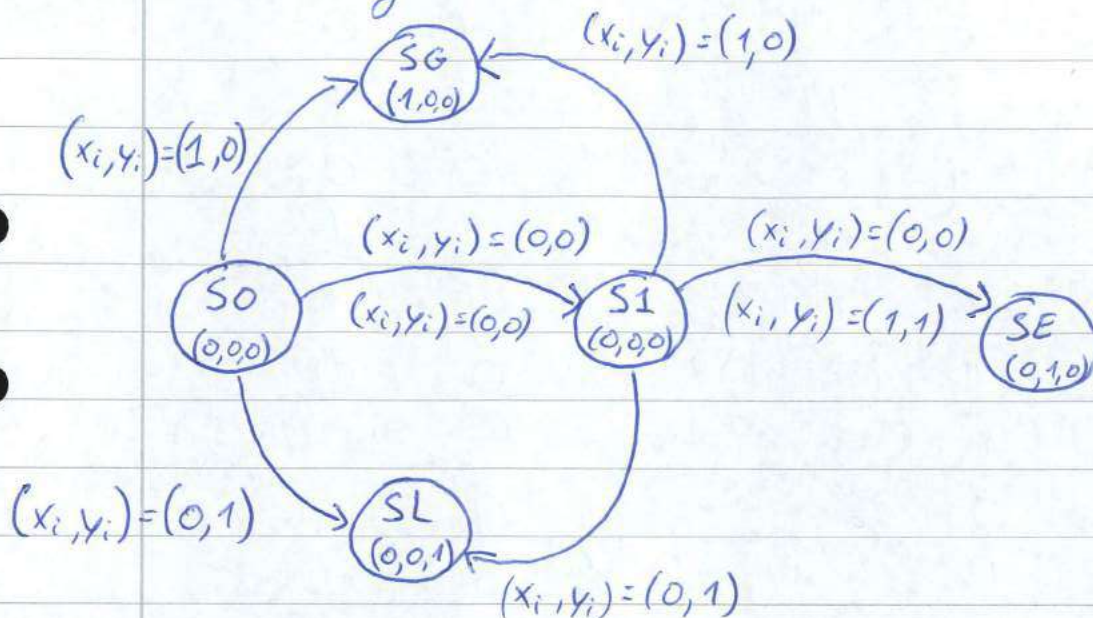 (xi,yi)=(1,0)
SG
(1,0,0)
(xi,yi)=(1,0)
(xi,yi)=(0,0)
(xi,yi)=(0,0)
S0
(0,0,0)
(xi,yi)=(0,0)
S1
(0,0,0)
(xi,yi)=(1,1)
SE
(0,1,0)
(xi,yi)=(0,1)
SL
(0,0,1)
(xi,yi)=(0,1)